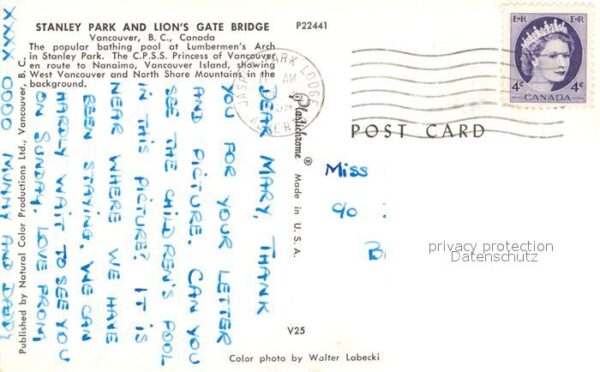 STANLEY PARK AND LION'S GATE BRIDGE
Vancouver, B. C., Canada
The popular bathing pool at Lumbermen's Arch
in Stanley Park. The C.P.S.S. Princess of Vancouver
en route to Nanaimo, Vancouver Island, showing
West Vancouver and North Shore Mountains in the
background.
P22441
JASPER PARK LODGE
AM
ALBERTA
E II R
E II R
4¢
CANADA
4¢
POST CARD
Plastichrome ®
Made in U.S.A.
DEAR MARY, THANK
YOU FOR YOUR LETTER
AND PICTURE. CAN YOU
SEE THE CHILDREN'S POOL
IN THIS PICTURE? IT IS
NEAR WHERE WE HAVE
BEEN STAYING. WE CAN
HARDLY WAIT TO SEE YOU
ON SUNDAY. LOVE FROM,
MUMMY AND DADDY
XXXX OOOO
Miss
c/o
B
privacy protection
Datenschutz
Published by Natural Color Productions Ltd., Vancouver, B. C.
V25
Color photo by Walter Labecki